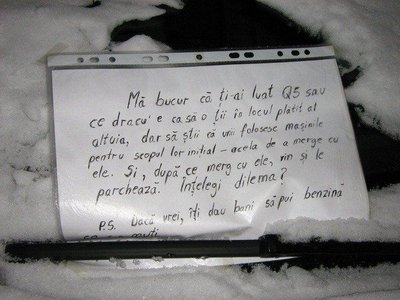 Mă bucur că ți-ai luat Q5 sau
ce dracu' e ca să o ții în locul plătit al
altuia, dar să știi că unii folosesc mașinile
pentru scopul lor inițial - acela de a merge cu
ele. Și, după ce merg cu ele, vin și le
parchează. Înțelegi dilema?
P.S. Dacă vrei, îți dau bani să pui benzină